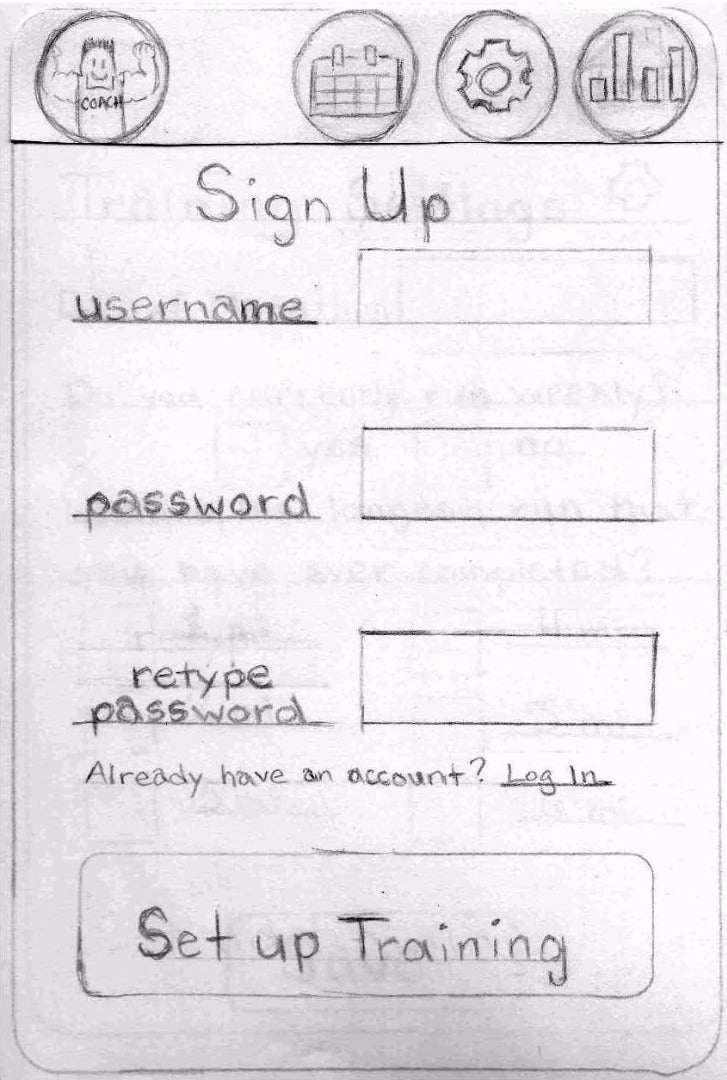 COACH
Sign Up
username
password
retype
password
Already have an account? Log In
Set up Training